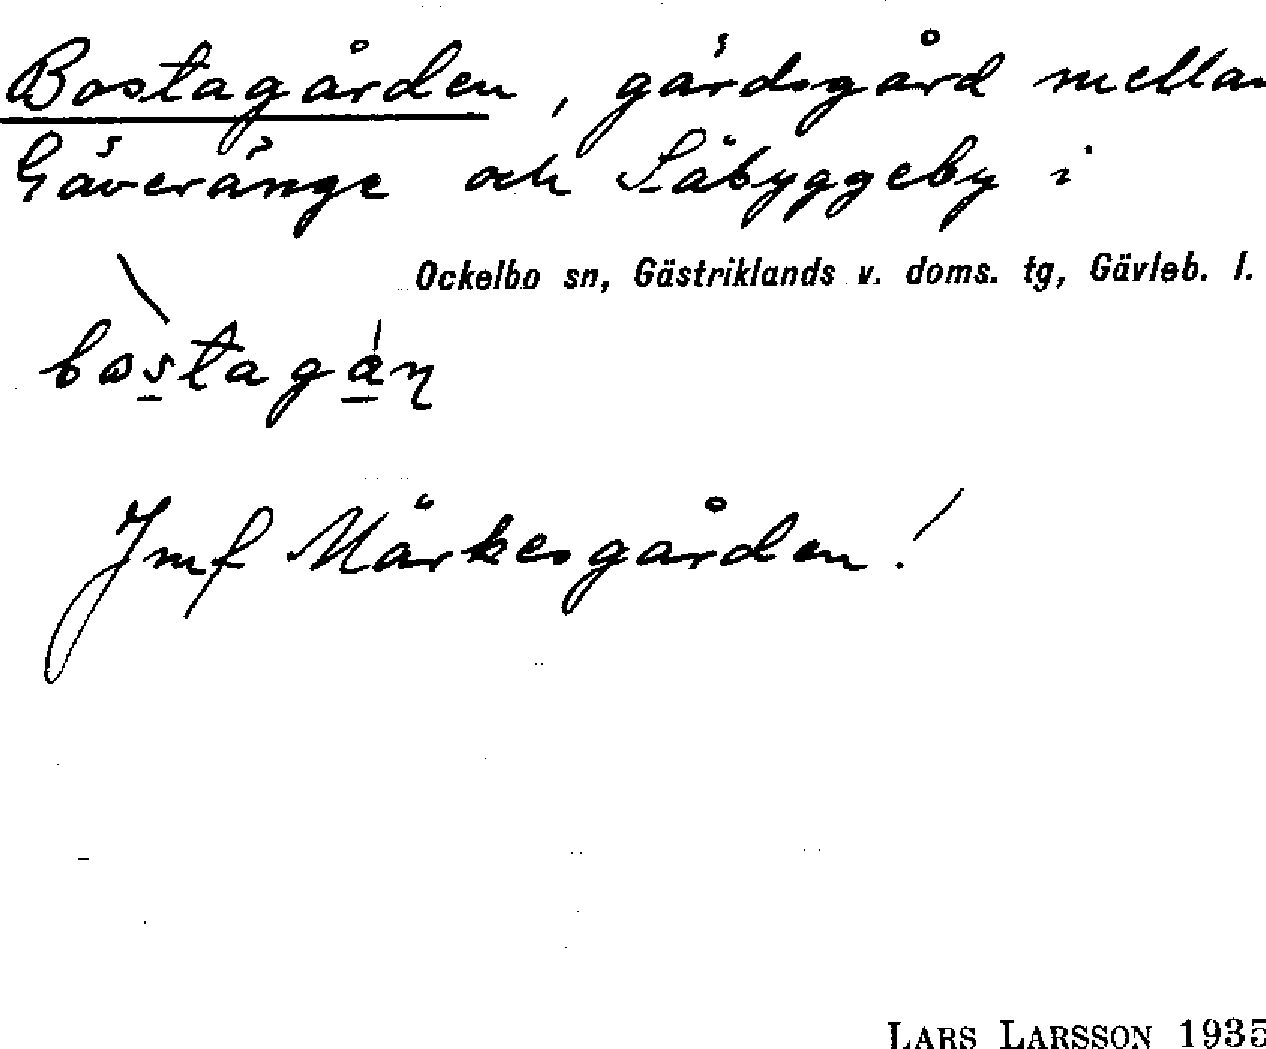 Bostagården, gärdsgård mellan
Gäveränge och Säbyggeby i
Ockelbo sn, Gästriklands v. doms. tg, Gävleb. l.
bostagán
Jmf Märkesgården!
LARS LARSSON 1935